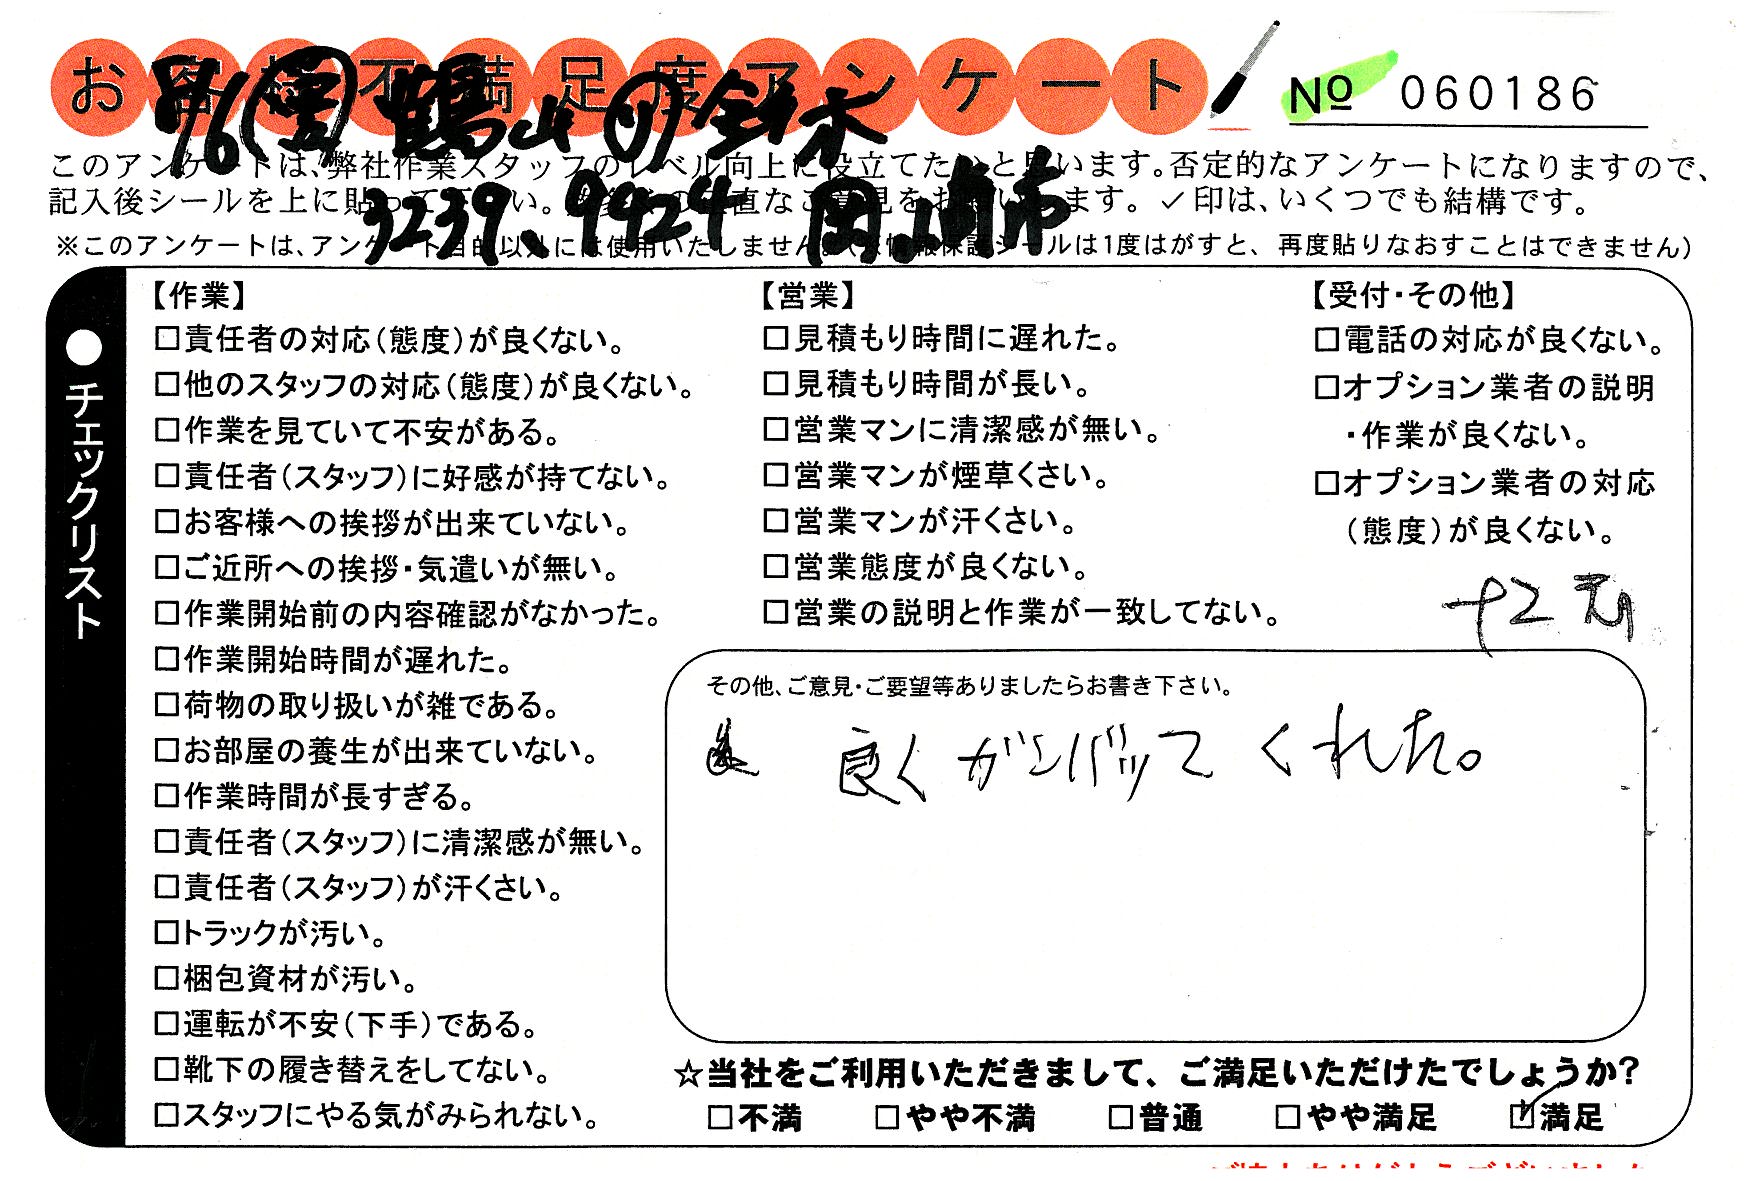 お客様不満足度アンケート
No 060186
鶴山 鈴木
3239、9424 岡崎市
このアンケートは、弊社作業スタッフのレベル向上に役立てたいと思います。否定的なアンケートになりますので、
記入後シールを上に貼って下さい。 直なご意見をお います。✓印は、いくつでも結構です。
※このアンケートは、アンケート目的以外には使用いたしません。 情報保護シールは1度はがすと、再度貼りなおすことはできません)
●チェックリスト
【作業】
□責任者の対応(態度)が良くない。
□他のスタッフの対応(態度)が良くない。
□作業を見ていて不安がある。
□責任者(スタッフ)に好感が持てない。
□お客様への挨拶が出来ていない。
□ご近所への挨拶・気遣いが無い。
□作業開始前の内容確認がなかった。
□作業開始時間が遅れた。
□荷物の取り扱いが雑である。
□お部屋の養生が出来ていない。
□作業時間が長すぎる。
□責任者(スタッフ)に清潔感が無い。
□責任者(スタッフ)が汗くさい。
□トラックが汚い。
□梱包資材が汚い。
□運転が不安(下手)である。
□靴下の履き替えをしてない。
□スタッフにやる気がみられない。
【営業】
□見積もり時間に遅れた。
□見積もり時間が長い。
□営業マンに清潔感が無い。
□営業マンが煙草くさい。
□営業マンが汗くさい。
□営業態度が良くない。
□営業の説明と作業が一致してない。
【受付・その他】
□電話の対応が良くない。
□オプション業者の説明
・作業が良くない。
□オプション業者の対応
(態度)が良くない。
その他、ご意見・ご要望等ありましたらお書き下さい。
良くガンバッてくれた。
☆当社をご利用いただきまして、ご満足いただけたでしょうか?
□不満 □やや不満 □普通 □やや満足 ☑満足